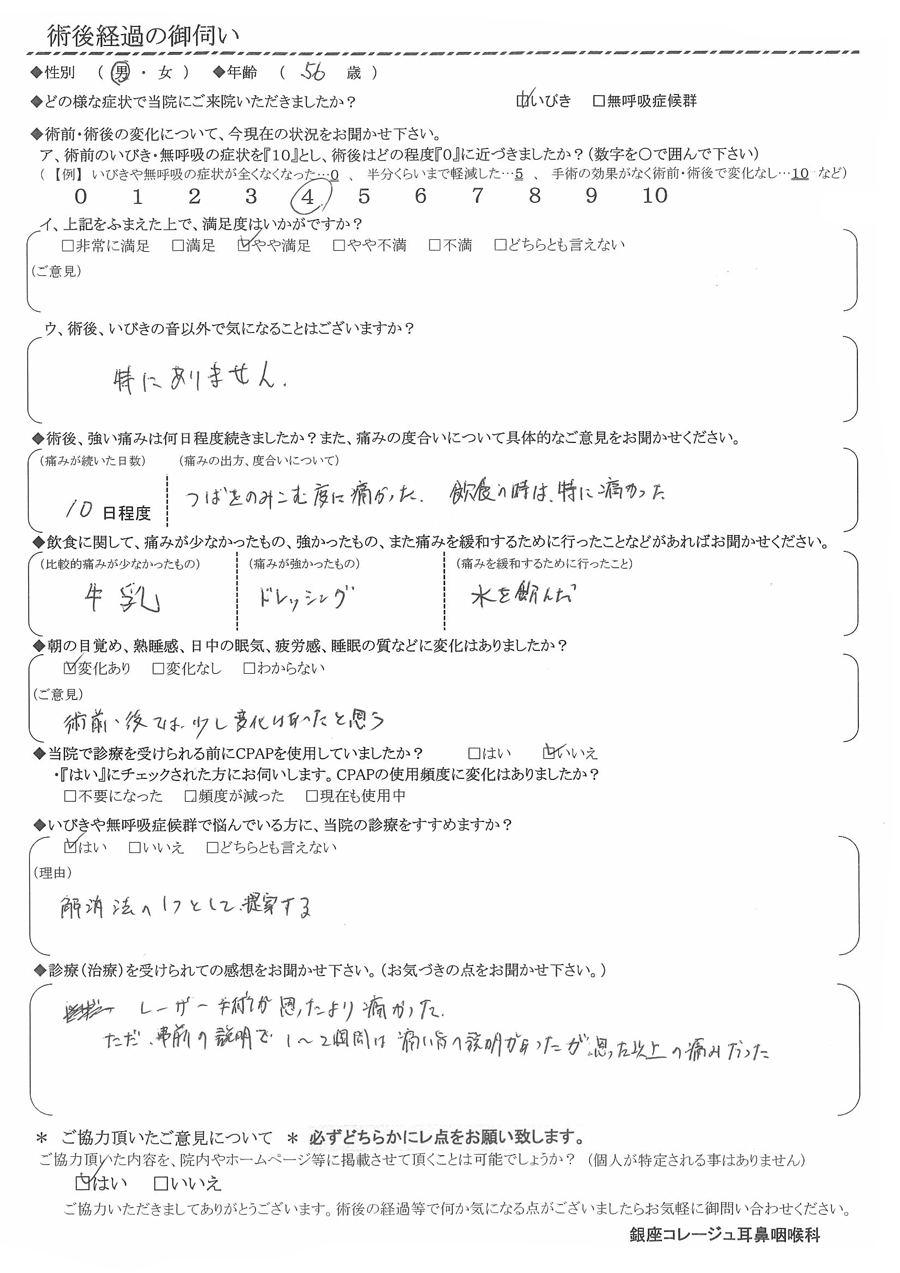 術後経過の御伺い
◆性別 ( 男 ・ 女 ) ◆年齢 ( 56 歳 )
◆どの様な症状で当院にご来院いただきましたか? ☑いびき □無呼吸症候群
◆術前・術後の変化について、今現在の状況をお聞かせ下さい。
ア、術前のいびき・無呼吸の症状を『10』とし、術後はどの程度『0』に近づきましたか?(数字を〇で囲んで下さい)
(【例】 いびきや無呼吸の症状が全くなくなった…0 、 半分くらいまで軽減した…5 、 手術の効果がなく術前・術後で変化なし…10 など)
0 1 2 3 4 5 6 7 8 9 10
イ、上記をふまえた上で、満足度はいかがですか?
□非常に満足 □満足 ☑やや満足 □やや不満 □不満 □どちらとも言えない
(ご意見)
ウ、術後、いびきの音以外で気になることはございますか?
特にありません.
◆術後、強い痛みは何日程度続きましたか?また、痛みの度合いについて具体的なご意見をお聞かせください。
(痛みが続いた日数) (痛みの出方、度合いについて)
10 日程度 つばをのみこむ度に痛かった. 飲食の時は、特に痛かった
◆飲食に関して、痛みが少なかったもの、強かったもの、また痛みを緩和するために行ったことなどがあればお聞かせください。
(比較的痛みが少なかったもの) (痛みが強かったもの) (痛みを緩和するために行ったこと)
牛乳 ドレッシング 水を飲んだ
◆朝の目覚め、熟睡感、日中の眠気、疲労感、睡眠の質などに変化はありましたか?
☑変化あり □変化なし □わからない
(ご意見)
術前、後では、少し変化はあったと思う
◆当院で診療を受けられる前にCPAPを使用していましたか? □はい ☑いいえ
・『はい』にチェックされた方にお伺いします。CPAPの使用頻度に変化はありましたか?
□不要になった □頻度が減った □現在も使用中
◆いびきや無呼吸症候群で悩んでいる方に、当院の診療をすすめますか?
☑はい □いいえ □どちらとも言えない
(理由)
解消法の1つとして、提案する
◆診療(治療)を受けられての感想をお聞かせ下さい。(お気づきの点をお聞かせ下さい。)
レーザー手術が思ったより痛かった.
ただ、事前の説明で1〜2週間は痛い旨の説明があったが、思った以上の痛みだった
＊ ご協力頂いたご意見について ＊ 必ずどちらかにレ点をお願い致します。
ご協力頂いた内容を、院内やホームページ等に掲載させて頂くことは可能でしょうか? (個人が特定される事はありません)
☑はい □いいえ
ご協力いただきましてありがとうございます。術後の経過等で何か気になる点がございましたらお気軽に御問い合わせください。
銀座コレージュ耳鼻咽喉科